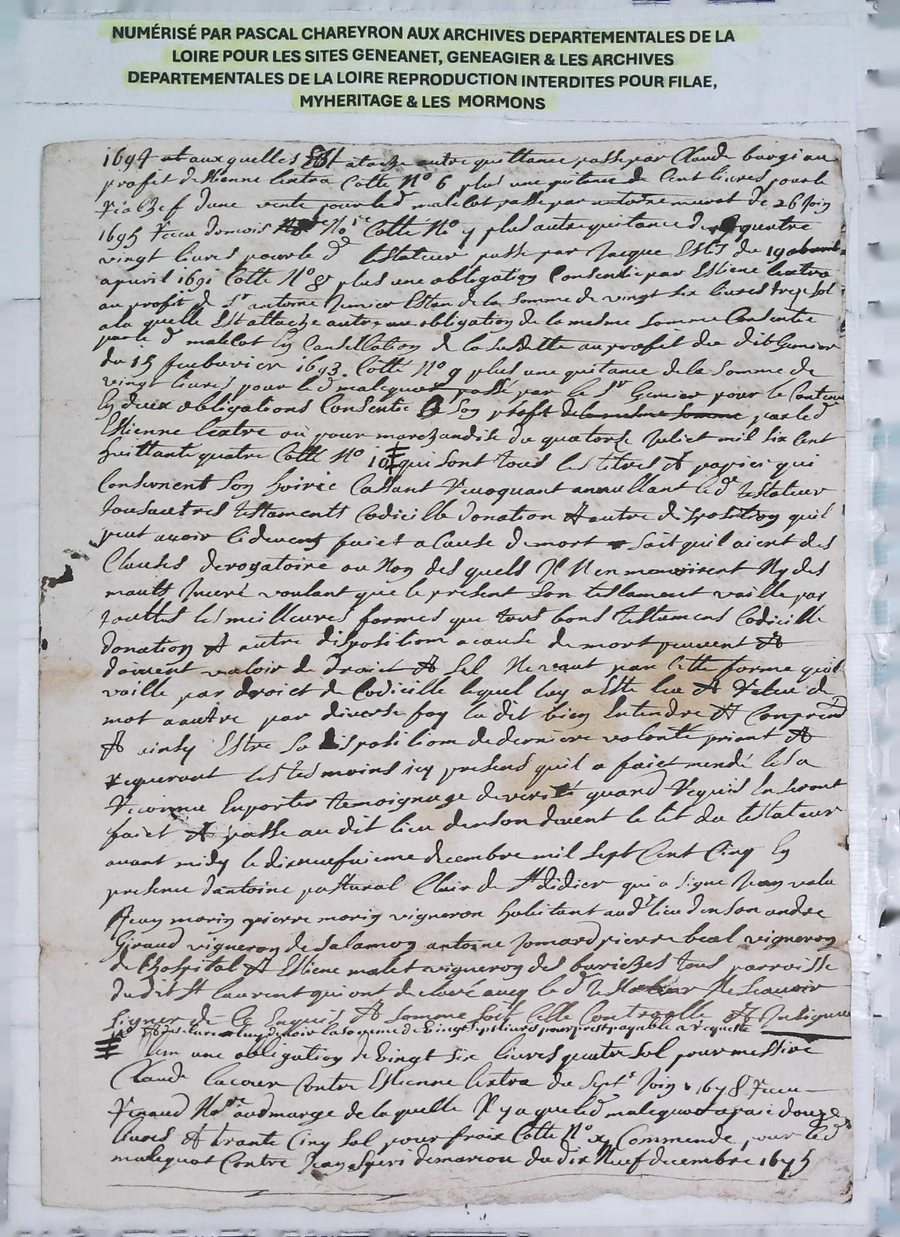 NUMÉRISÉ PAR PASCAL CHAREYRON AUX ARCHIVES DEPARTEMENTALES DE LA
LOIRE POUR LES SITES GENEANET, GENEAGIER & LES ARCHIVES
DEPARTEMENTALES DE LA LOIRE REPRODUCTION INTERDITES POUR FILAE,
MYHERITAGE & LES MORMONS
1694 et aux quelles Est atache autre quittance passe par Claude burgi au
profit destienne Cotte No 6 plus une quitance de Cent livres pour le
dune vente pour led malicot passe par antoine murat de 26 Juin
1695 Receu Cotte No 7 plus autre quitance de quatre
vingt livres pour le dt testateur passe par Jacque du 19
apvril 1691 Cotte No 8 plus une obligation Consentie par Estiene
au profit de Sr antoine de la Somme de vingt six livres sol
a la quelle Est attache autre une obligation de la mesme Somme Consentie
par le d malicot En Cansellation de la Susditte au profit du dit
du 15 feubvrier 1693 Cotte No 9 plus une quitance de la Somme de
vingt livres pour led malequot passé par le Sr pour le Contenu
En deux obligations Consentie a Son profit de la mesme Somme par led
Estienne ou pour marchandise du quatorse Juliet mil six Cent
huittante quatre Cotte No 10 qui sont tous les titres Et papies qui
Consernent Son hoirie Cassant Revoquant annullant led testateur
tous autres testaments Codicille donation Et autre disposition quil
peut avoir si devent faict a Cause de mort Soit quil aient des
Clauses derogatoire ou Non des quels Il N en Ny des
voulant que le present Son testament vaille par
touttes les meilleures formes que tous bons testamens Codicille
donation Et autre disposition a cause de mort peuvent Et
doivent valoir de droict Et Sil Ne vaut par Cette forme quil
vaille par droict de Codicille lequel luy a Este leu Et Releu de
mot a autre par diverse foy la dit bien Entendre Et Comprend
Et ainsy Estre Sa disposition de derniere volonté priant Et
requerant les tesmoins icy presens quil a faict mendé
En porter temoignage de verité quand Requis En Seront
faict Et passe au dit lieu denson devent le lit du testateur
avant midy le dixneufuieme decembre mil Sept Cent Cinq En
presence dantoine pastural Clair de St didier qui a Signe Jean vala
Jean morin pierre morin vigneron habitant aud lieu denson andre
Giraud vigneron de Salamon antoine Jomard pierre beal vigneron
de lhospital Et Estiene malet vigneron des tous parroisse
du dit St laurent qui ont declaré avec led testateur Ne Scavoir
signer de Ce Enquis Et Somme Soit Cette Controlle Et Insignue
la somme de livres pour prest payable a requeste
une obligation de vingt Six livres quatre Sol pour messire
Claude lacour Contre Estienne du Septe Juin 1678 Receu
Renaud Nore au dmarge de la quelle Il y a que led malequot a paié douze
livres Et trante Cinq Sol pour fraix Cotte No Commende pour led
malequot Contre Jean du dix Neuf decembre 1675